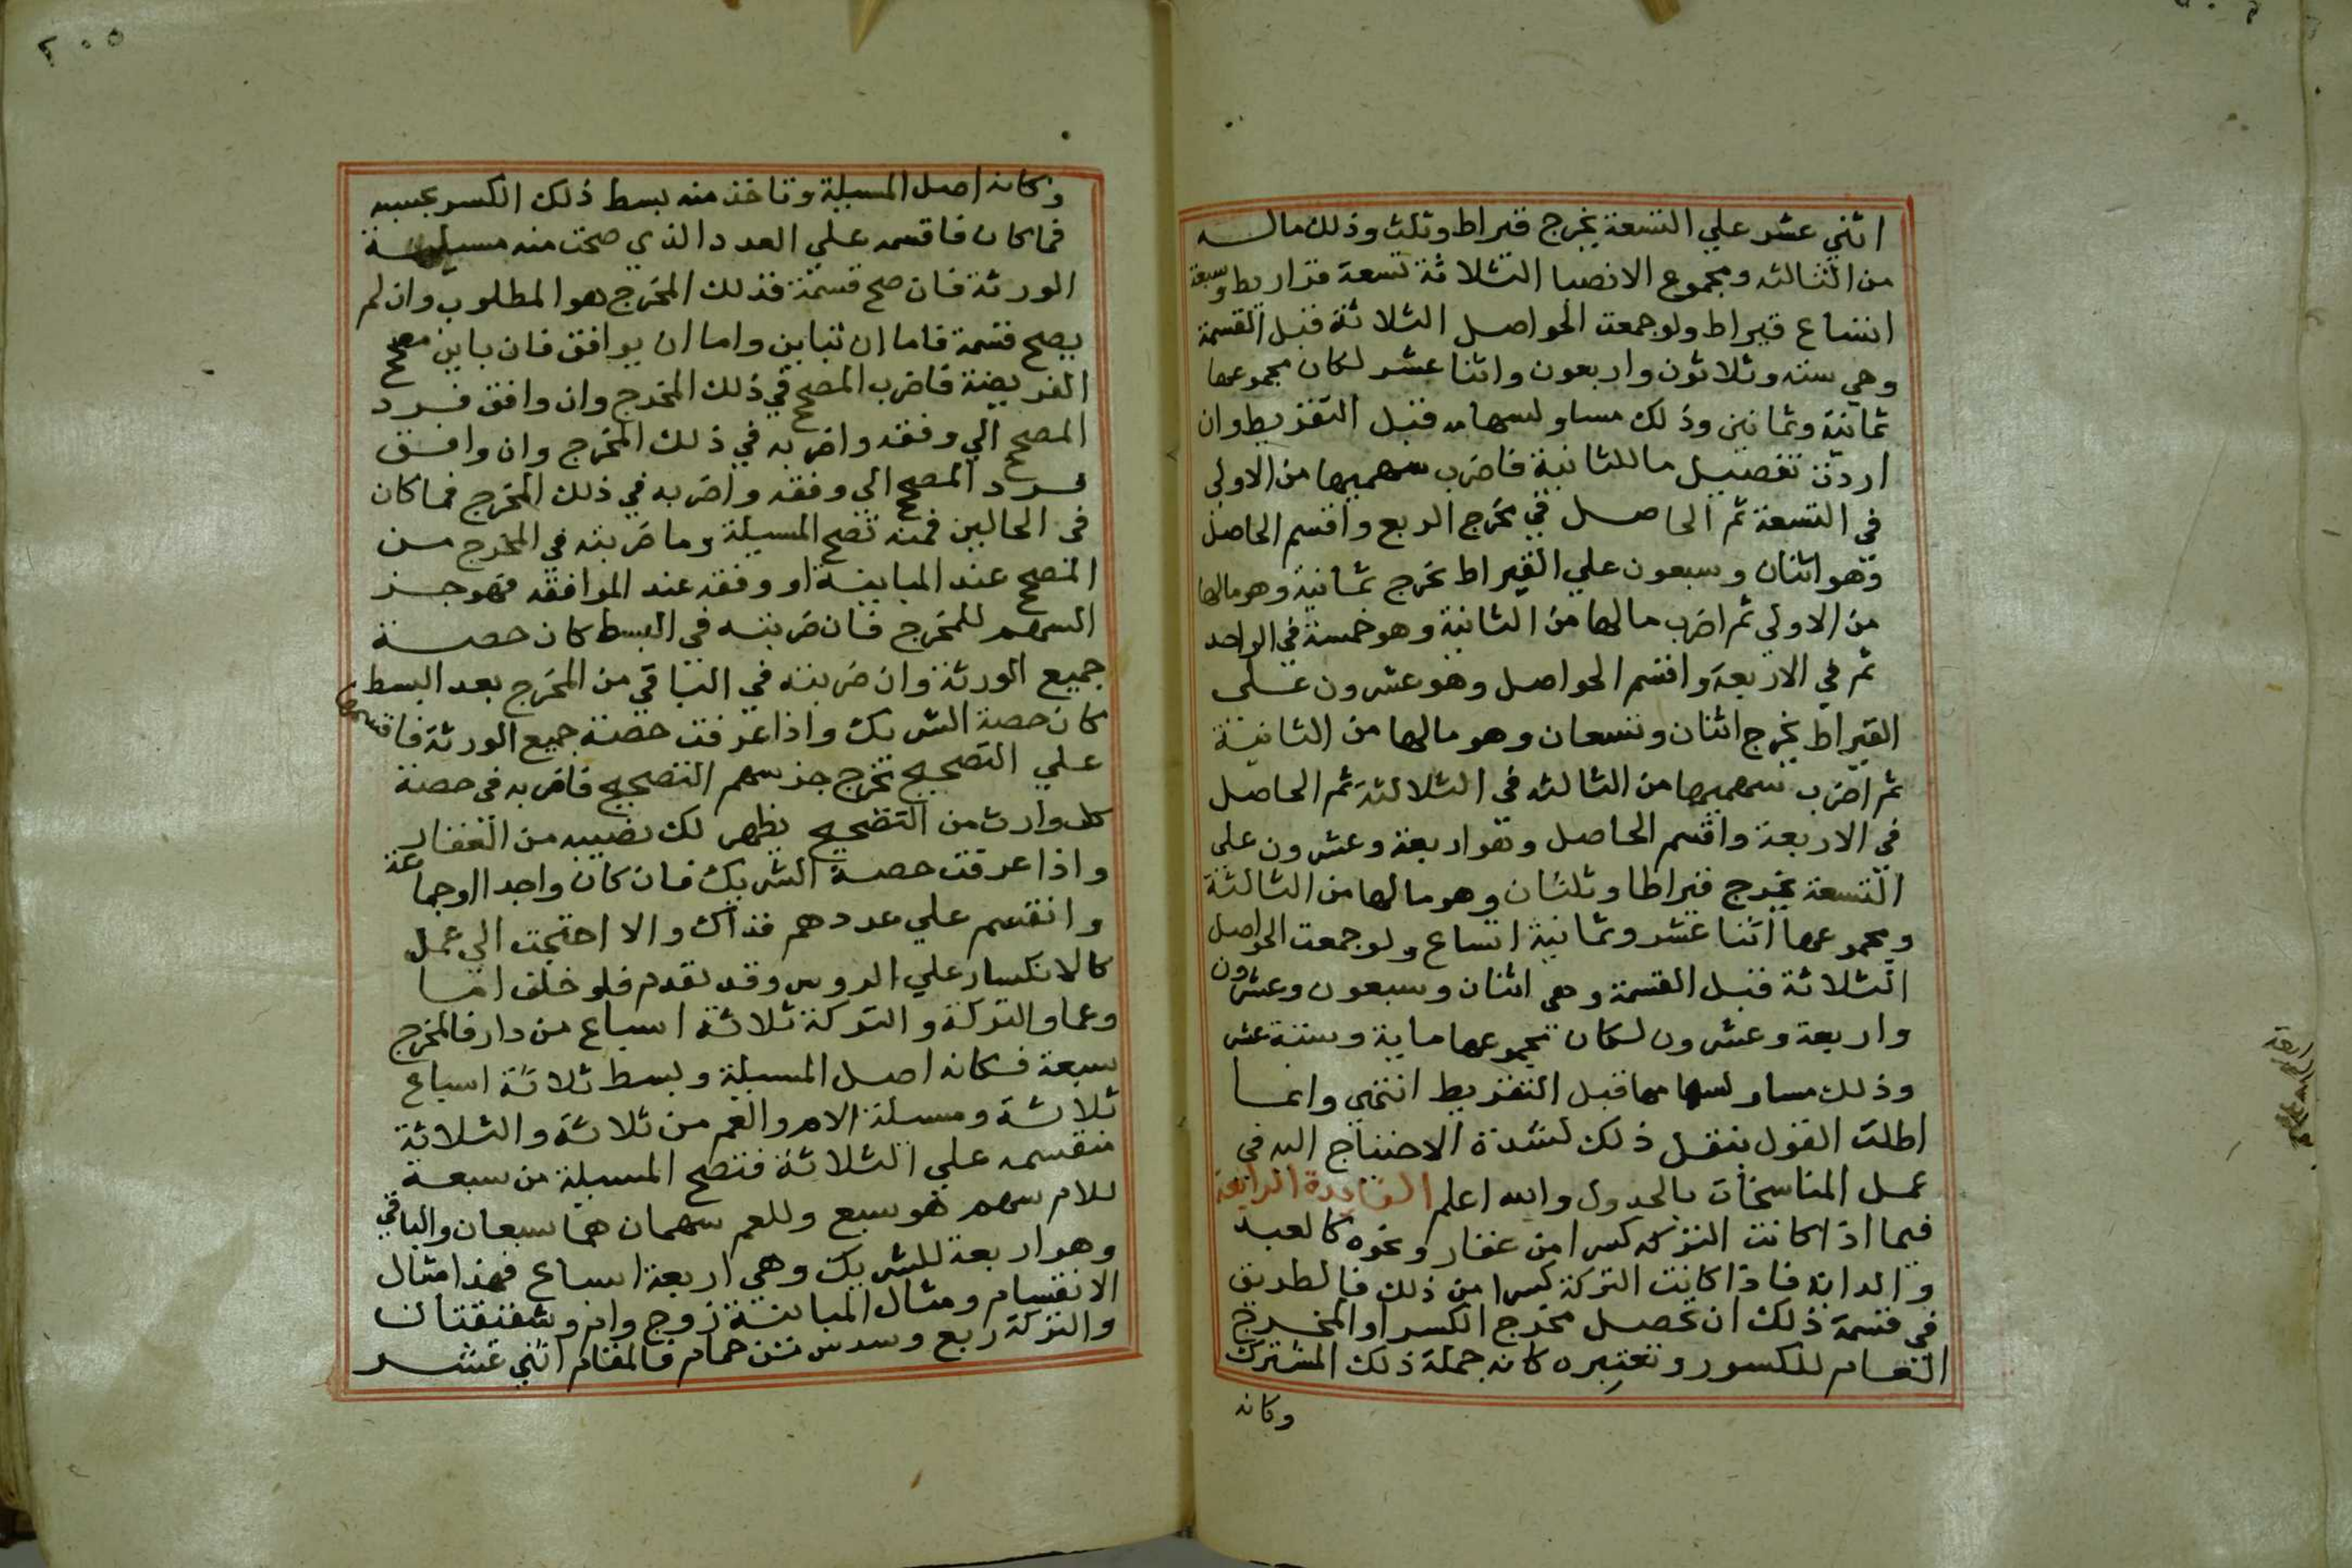 اثني عشر علي التسعة يخرج قيراط وثلث وذلك ماله
من الثالثه ومجموع الانصبا الثلاثة تسعة قراريط وسبعة
اتساع قيراط ولو جمعت الحواصل الثلاثة قبل القسمة
وهي سته وثلاثون واربعون واثنا عشر لكان مجموعها
ثمانية وثمانين وذلك مساو لسهامه قبل التقريط وان
اردت تفصيل ما للثانية فاضرب سهميها من الاولي
في التسعة ثم الحاصل في مخرج الربع واقسم الحاصل
وهو اثنان وسبعون علي القيراط يخرج ثمانية وهو مالها
من الاولي ثم اضرب مالها من الثانية وهو خمسة في الواحد
ثم في الاربعة واقسم الحواصل وهو عشرون علي
القيراط يخرج اثنان وتسعان وهو مالها من الثانية
ثم اضرب سهميها من الثالثه في الثلاثة ثم الحاصل
في الاربعة واقسم الحاصل وهو اربعة وعشرون علي
التسعة يخرج قيراطا وثلثان وهو مالها من الثالثة
ومجموعها اثنا عشر وثمانية اتساع ولو جمعت الحواصل
الثلاثة قبل القسمة وهي اثنان وسبعون وعشرون
واربعة وعشرون لكان مجموعها ماية وستة عشر
وذلك مساو لسهامها قبل التقريط انتهي وانما
اطلت القول بنقل ذلك لشدة الاحتياج اليه في
عمل المناسخات بالجدول والله اعلم الفايدة الرابعة
فيما اذا كانت التركه كسرا من عقار ونحوه كالعبد
والدابة فاذا كانت التركة كسرا من ذلك فالطريق
في قسمة ذلك ان تحصل مخرج الكسر او المخرج
العام للكسور وتعتبره كانه جملة ذلك المشترك
وكانه
الرابعة
٢٠٥
وكانه اصل المسيلة وتاخذ منه بسط ذلك الكسر بحسبه
فما كان فاقسمه علي العدد الذي صحت منه مسيلة
الورثة فان صح قسمة فذلك المخرج هو المطلوب وان لم
يصح قسمة فاما ان تباين واما ان يوافق فان باين مصحح
الفريضة فاضرب المصحح في ذلك المخرج وان وافق فرد
المصحح الي وفقه واضربه في ذلك المخرج وان وافق
فرد المصحح الي وفقه واضربه في ذلك المخرج فما كان
في الحالين فمنه تصح المسيلة وما ضربته في المخرج من
المصحح عند المباينة او وفقه عند الموافقه فهو جز
السهم للمخرج فان ضربته في البسط كان حصة
جميع الورثة وان ضربته في الباقي من المخرج بعد البسط
كان حصة الشريك واذا عرفت حصة جميع الورثة فاقسمها
علي التصحيح تخرج جز سهم التصحيح فاضربه في حصة
كل وارث من التصحيح يظهر لك نصيبه من العقار
واذا عرفت حصة الشريك فان كان واحدا اوجماعة
وانقسم علي عددهم فذاك والا احتجت الي عمل
كالانكسار علي الروس وقد تقدم فلو خلف اما
وعما والتركة والتركة ثلاثة اسباع من دار فالمخرج
سبعة فكانه اصل المسيلة وبسط ثلاثة اسباع
ثلاثة ومسلة الام والعم من ثلاثة والثلاثة
منقسمه علي الثلاثة فتصح المسيلة من سبعة
للام سهم هو سبع وللعم سهمان هما سبعان والباقي
وهو اربعة للشريك وهي اربعة اسباع فهذا مثال
الانقسام ومثال المباينة زوج وام وشقيقتان
والتركة ربع وسدس من حمام فالمقام اثني عشر